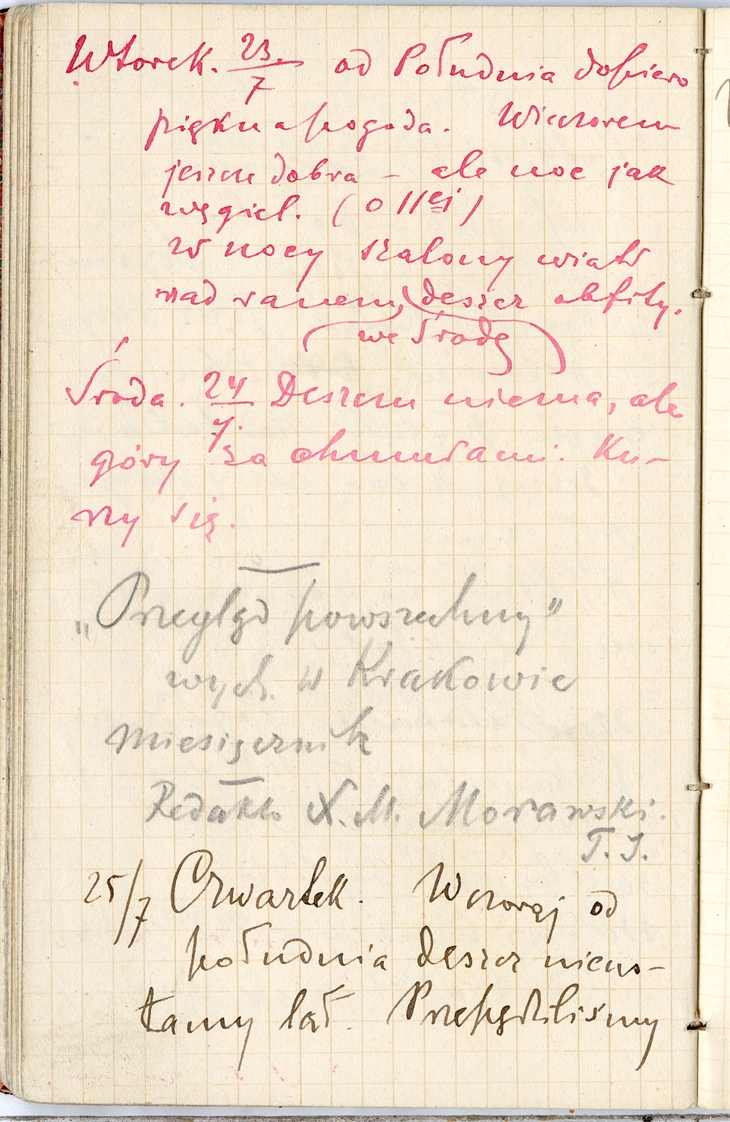 Wtorek. 23/7 od Południa dopiero
piękna pogoda. Wieczorem
jeszcze dobra – ale noc jak
węgiel. (o 11ej)
w nocy szalony wiatr
nad ranem, deszcz obfity.
we środę
Środa. 24/7. Deszczu niema, ale
góry za chmurami. Ku-
rzy się.
„Przegląd powszechny"
wych. w Krakowie
miesięcznik
Redakto X. M. Morawski.
T. J.
25/7 Czwartek. Wczoraj od
południa deszcz nieus-
tanny lał. Przepędziliśmy